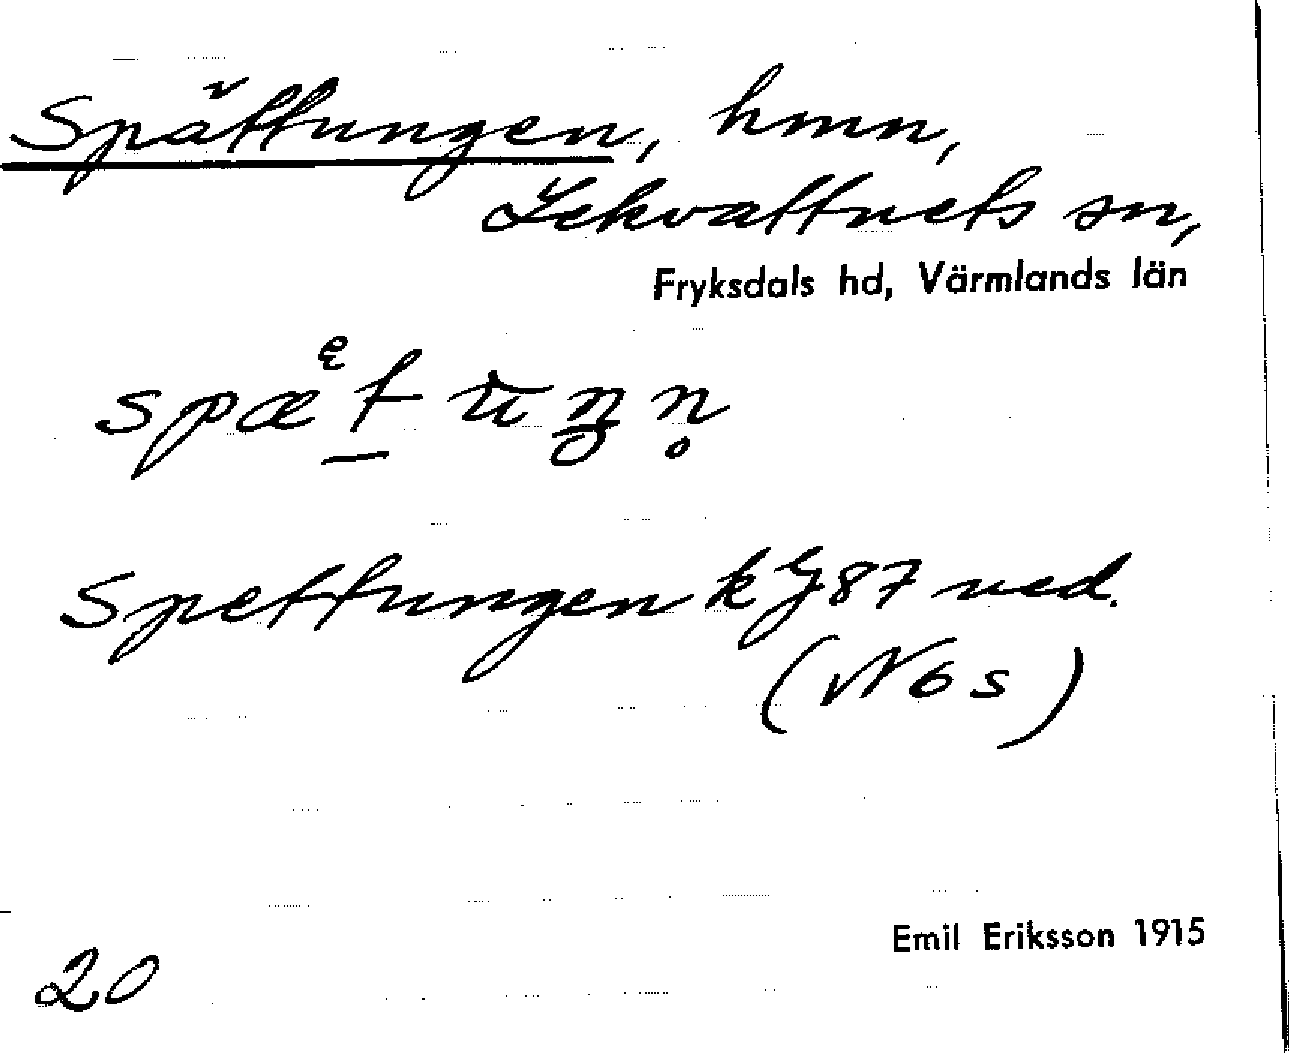 Spättungen, hmn,
Lekvattnets sn,
Fryksdals hd, Värmlands län
Spettungen k 87 ved.
Emil Eriksson 1915
20